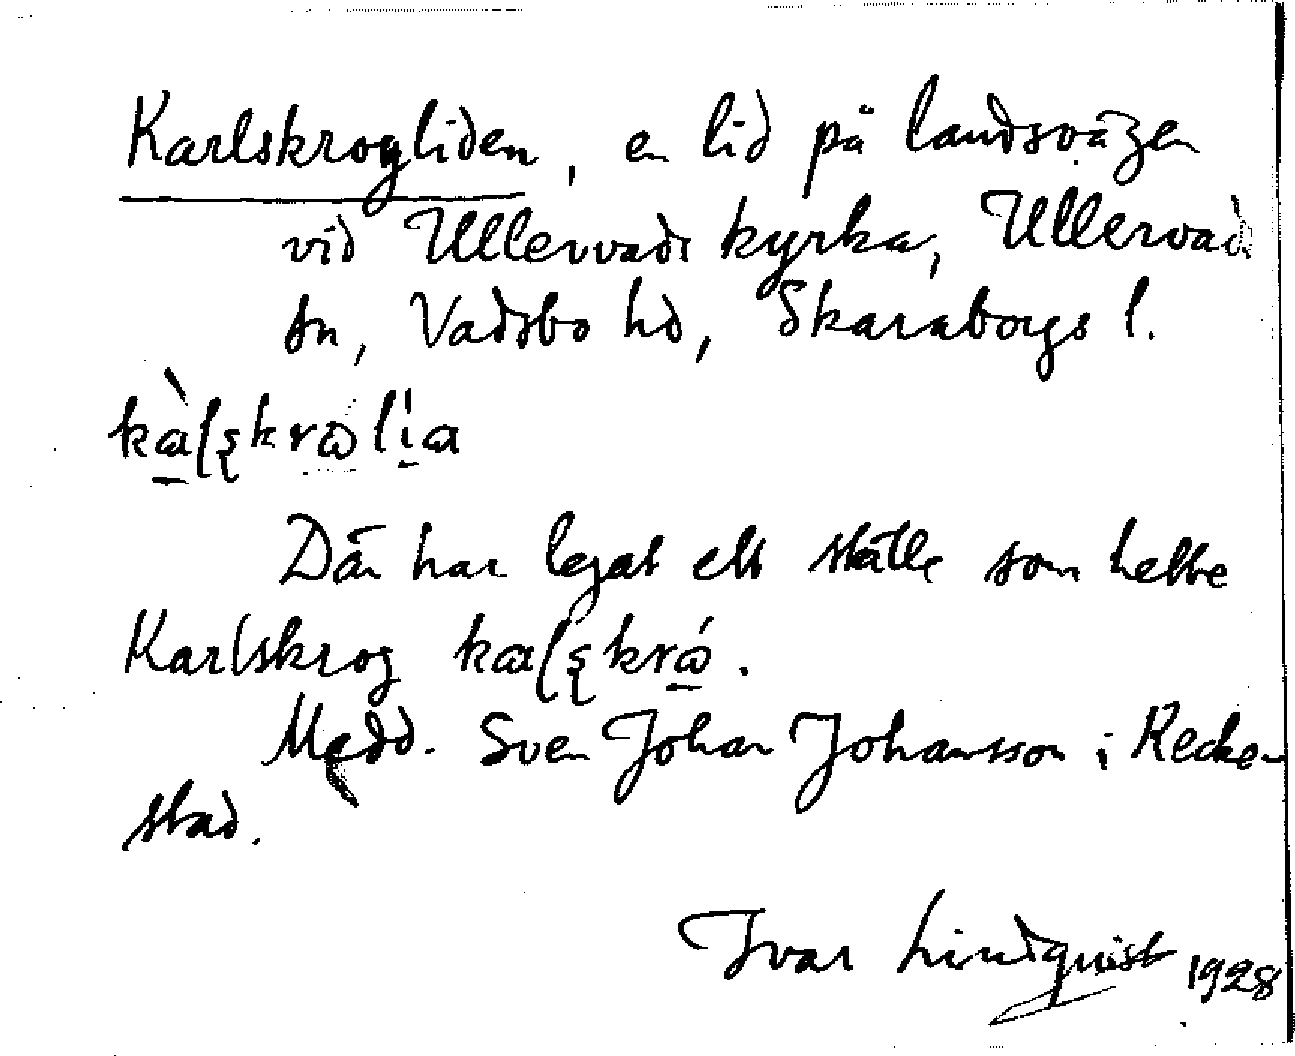 Karlskrogliden, en lid på landsvägen
vid Ullervads kyrka, Ullervads
sn, Vadsbo hd, Skaraborgs l.
Där har legat ett ställe som hette
Karlskrog
Medd. Sven Johan Johansson i Recken-
stad.
Ivar Lindquist 1928